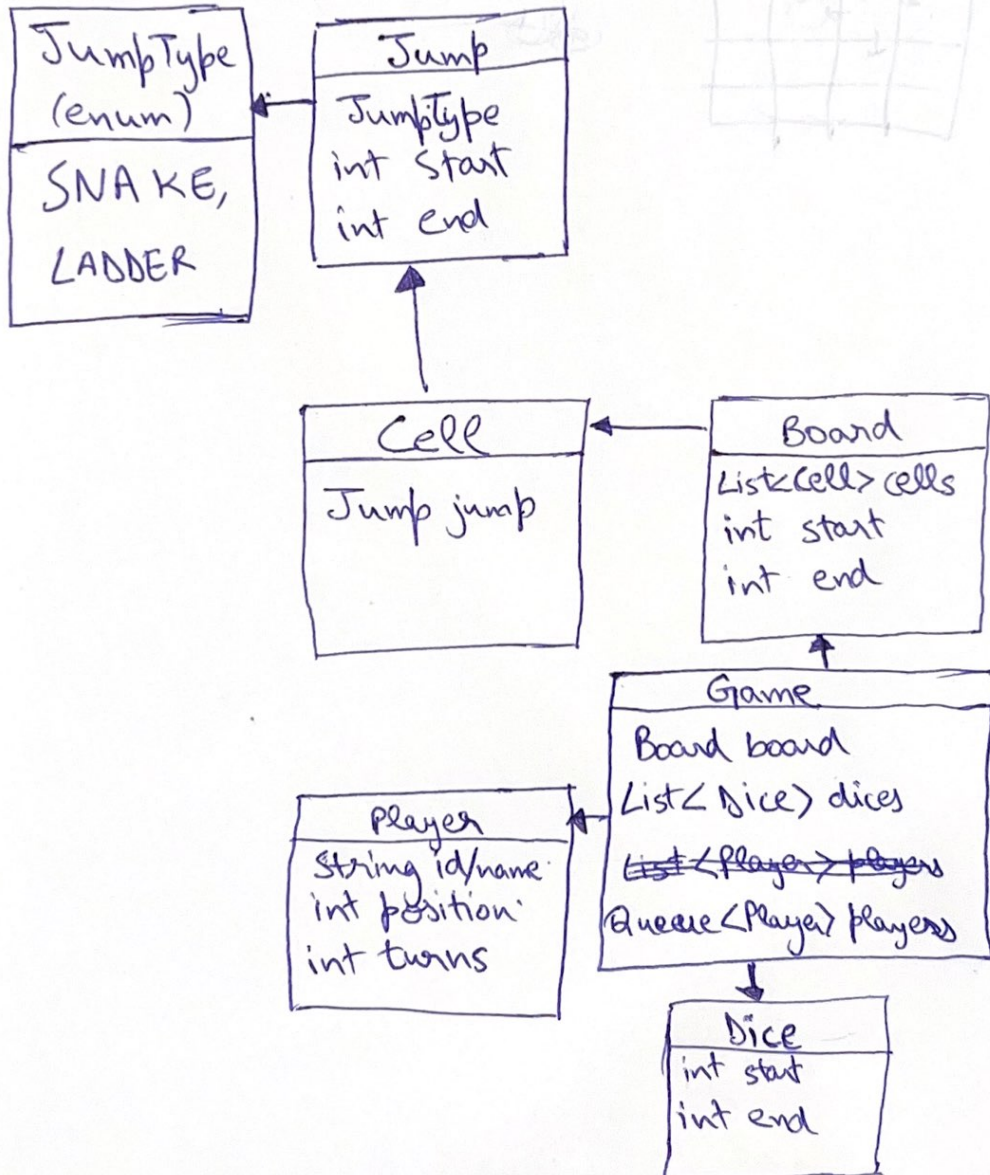 JumpType
(enum)
SNAKE,
LADDER
Jump
JumpType
int start
int end
Cell
Jump jump
Board
List<Cell> cells
int start
int end
Game
Board board
List<Dice> dices
List<Player> players
Queue<Player> players
Player
String id/name
int position
int turns
Dice
int start
int end